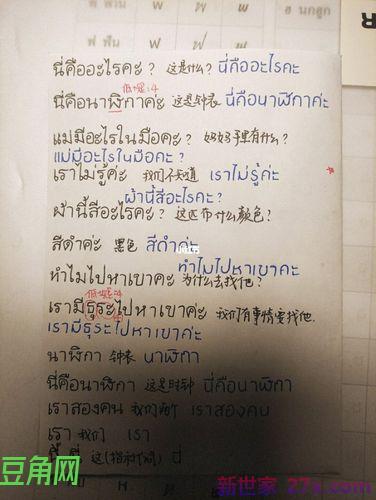 ฟ ฟัน ฟ ฟ ฟ
ฮ นกฮูก
นี่คืออะไรคะ? 这是什么? นี่คืออะไรคะ
低+短:4
นี่คือนาฬิกาค่ะ 这是钟表 นี่คือนาฬิกาค่ะ
แม่มีอะไรในมือคะ? 妈妈手里有什么?
แม่มีอะไรในมือคะ?
เราไม่รู้ค่ะ 我们不知道 เราไม่รู้ค่ะ
ผ้านี้สีอะไรคะ?
ผ้านี้สีอะไรคะ? 这匹布什么颜色?
สีดำค่ะ 黑色 สีดำค่ะ
ทำไมไปหาเขาคะ
ทำไมไปหาเขาคะ? 为什么去找他?
低+短:4
เรามีธุระไปหาเขาค่ะ 我们有事情要找他.
เรามีธุระไปหาเขาค่ะ
นาฬิกา 钟表 นาฬิกา
นี่คือนาฬิกา 这是时钟 นี่คือนาฬิกา
เราสองคน 我们两个 เราสองคน
เรา 我们 เรา
ปี นี้ 这(指时间) ปี
豆角网
新世家 27x.com